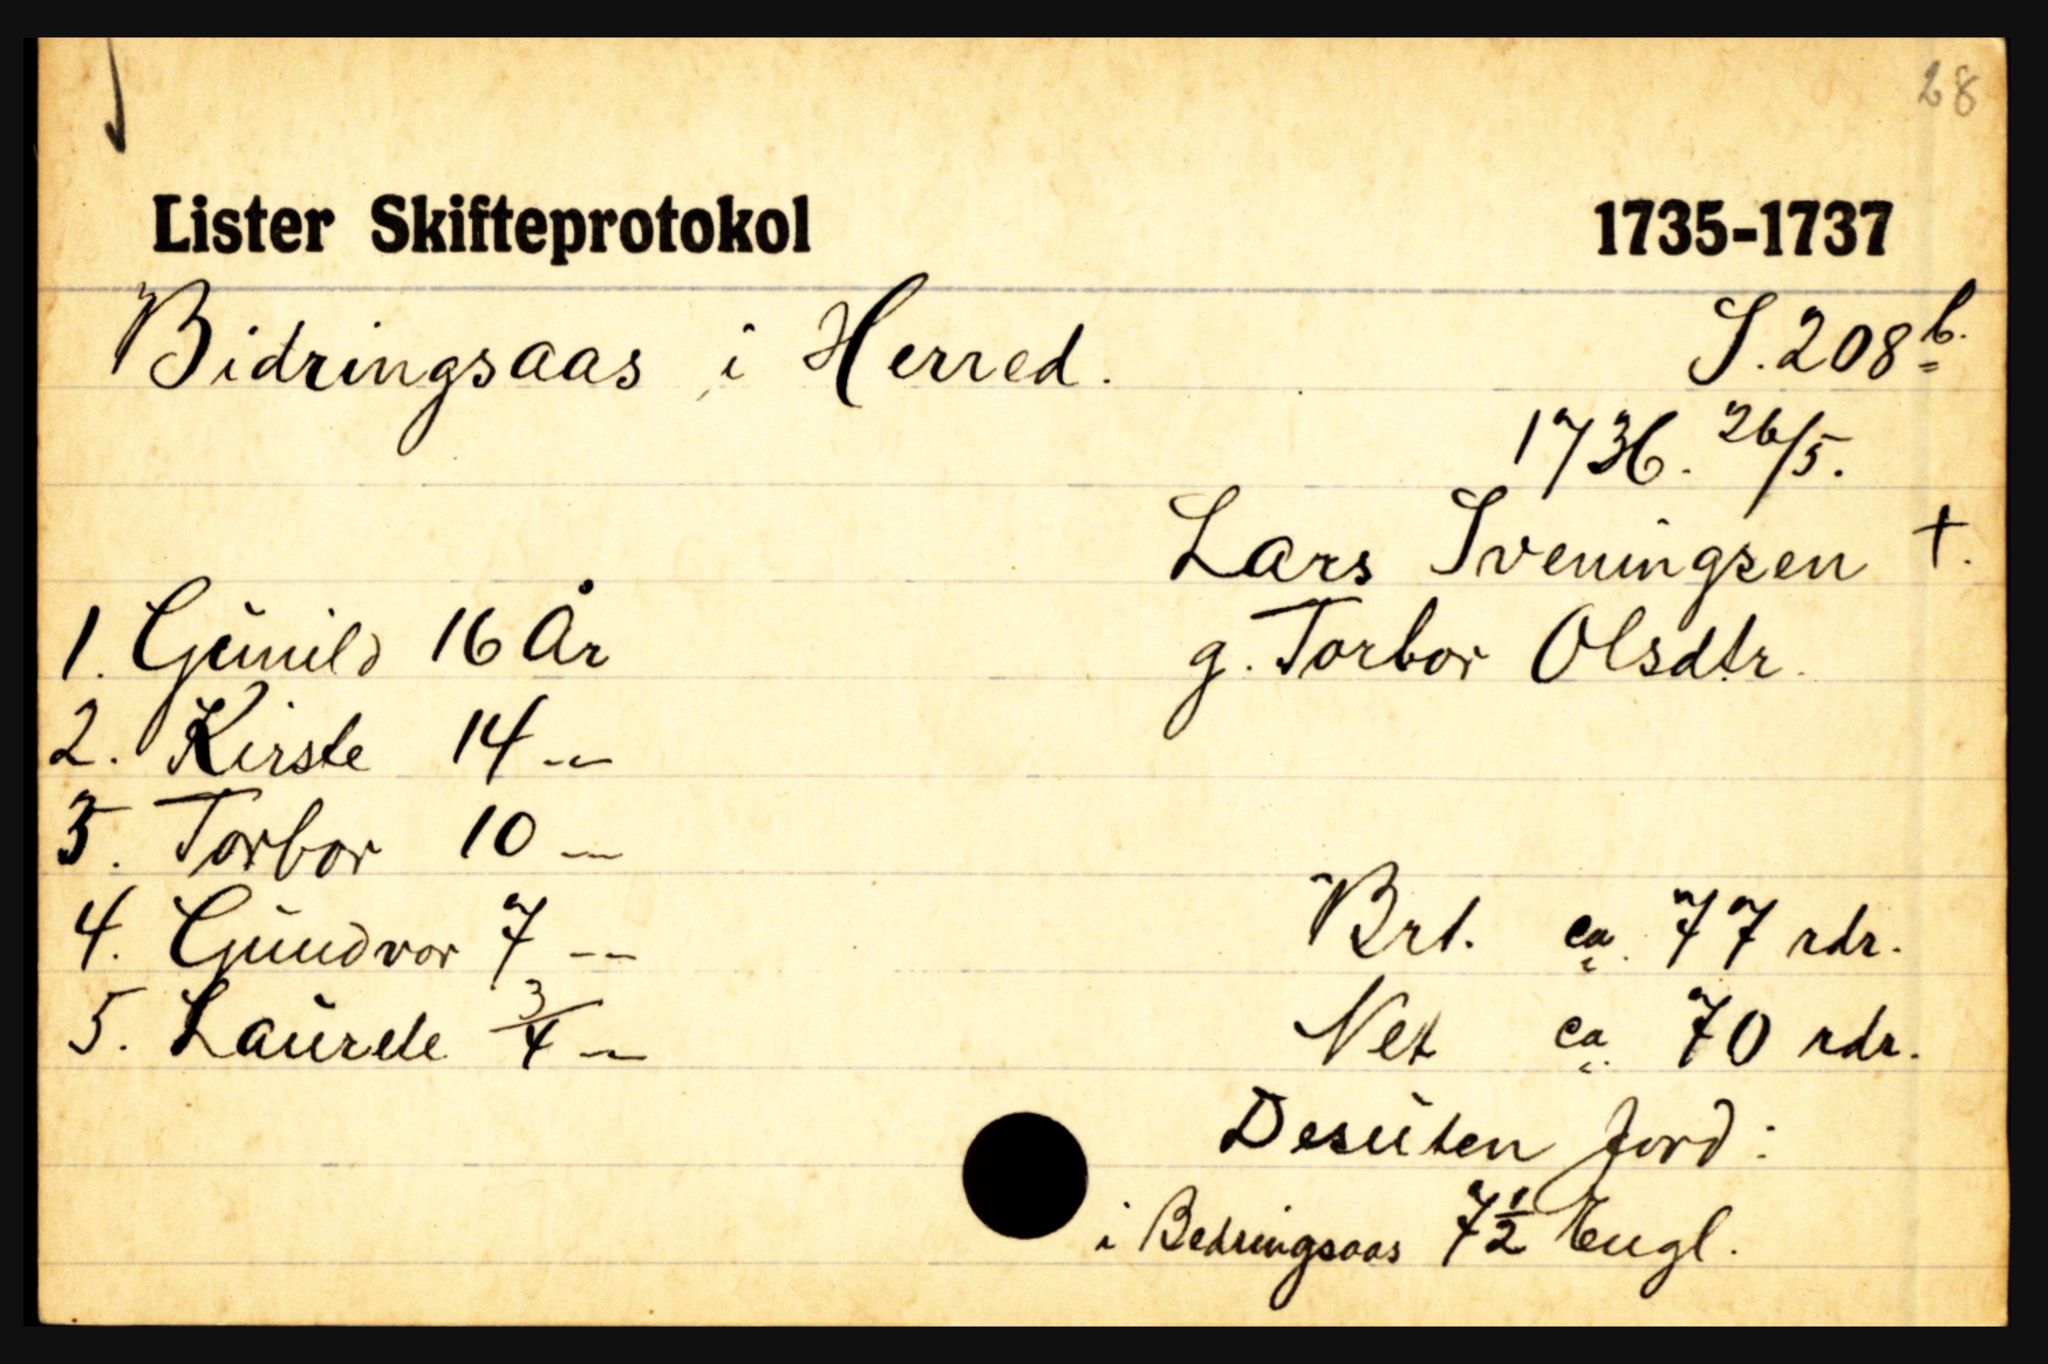 28
Lister Skifteprotokol 1735-1737
Bidringsaas i Herred. S. 208 b.
1736. 26/5.
Lars Sveningsen †.
1. Gunild 16 År g. Torbor Olsdtr.
2. Kirste 14 --
3. Torbor 10 --
4. Gundvor 7 -- Brt. ca. 77 rdr.
5. Laurete 3/4 -- Net ca. 70 rdr.
Desuten Jord:
i Bedringsaas 7 1/2 Engl.